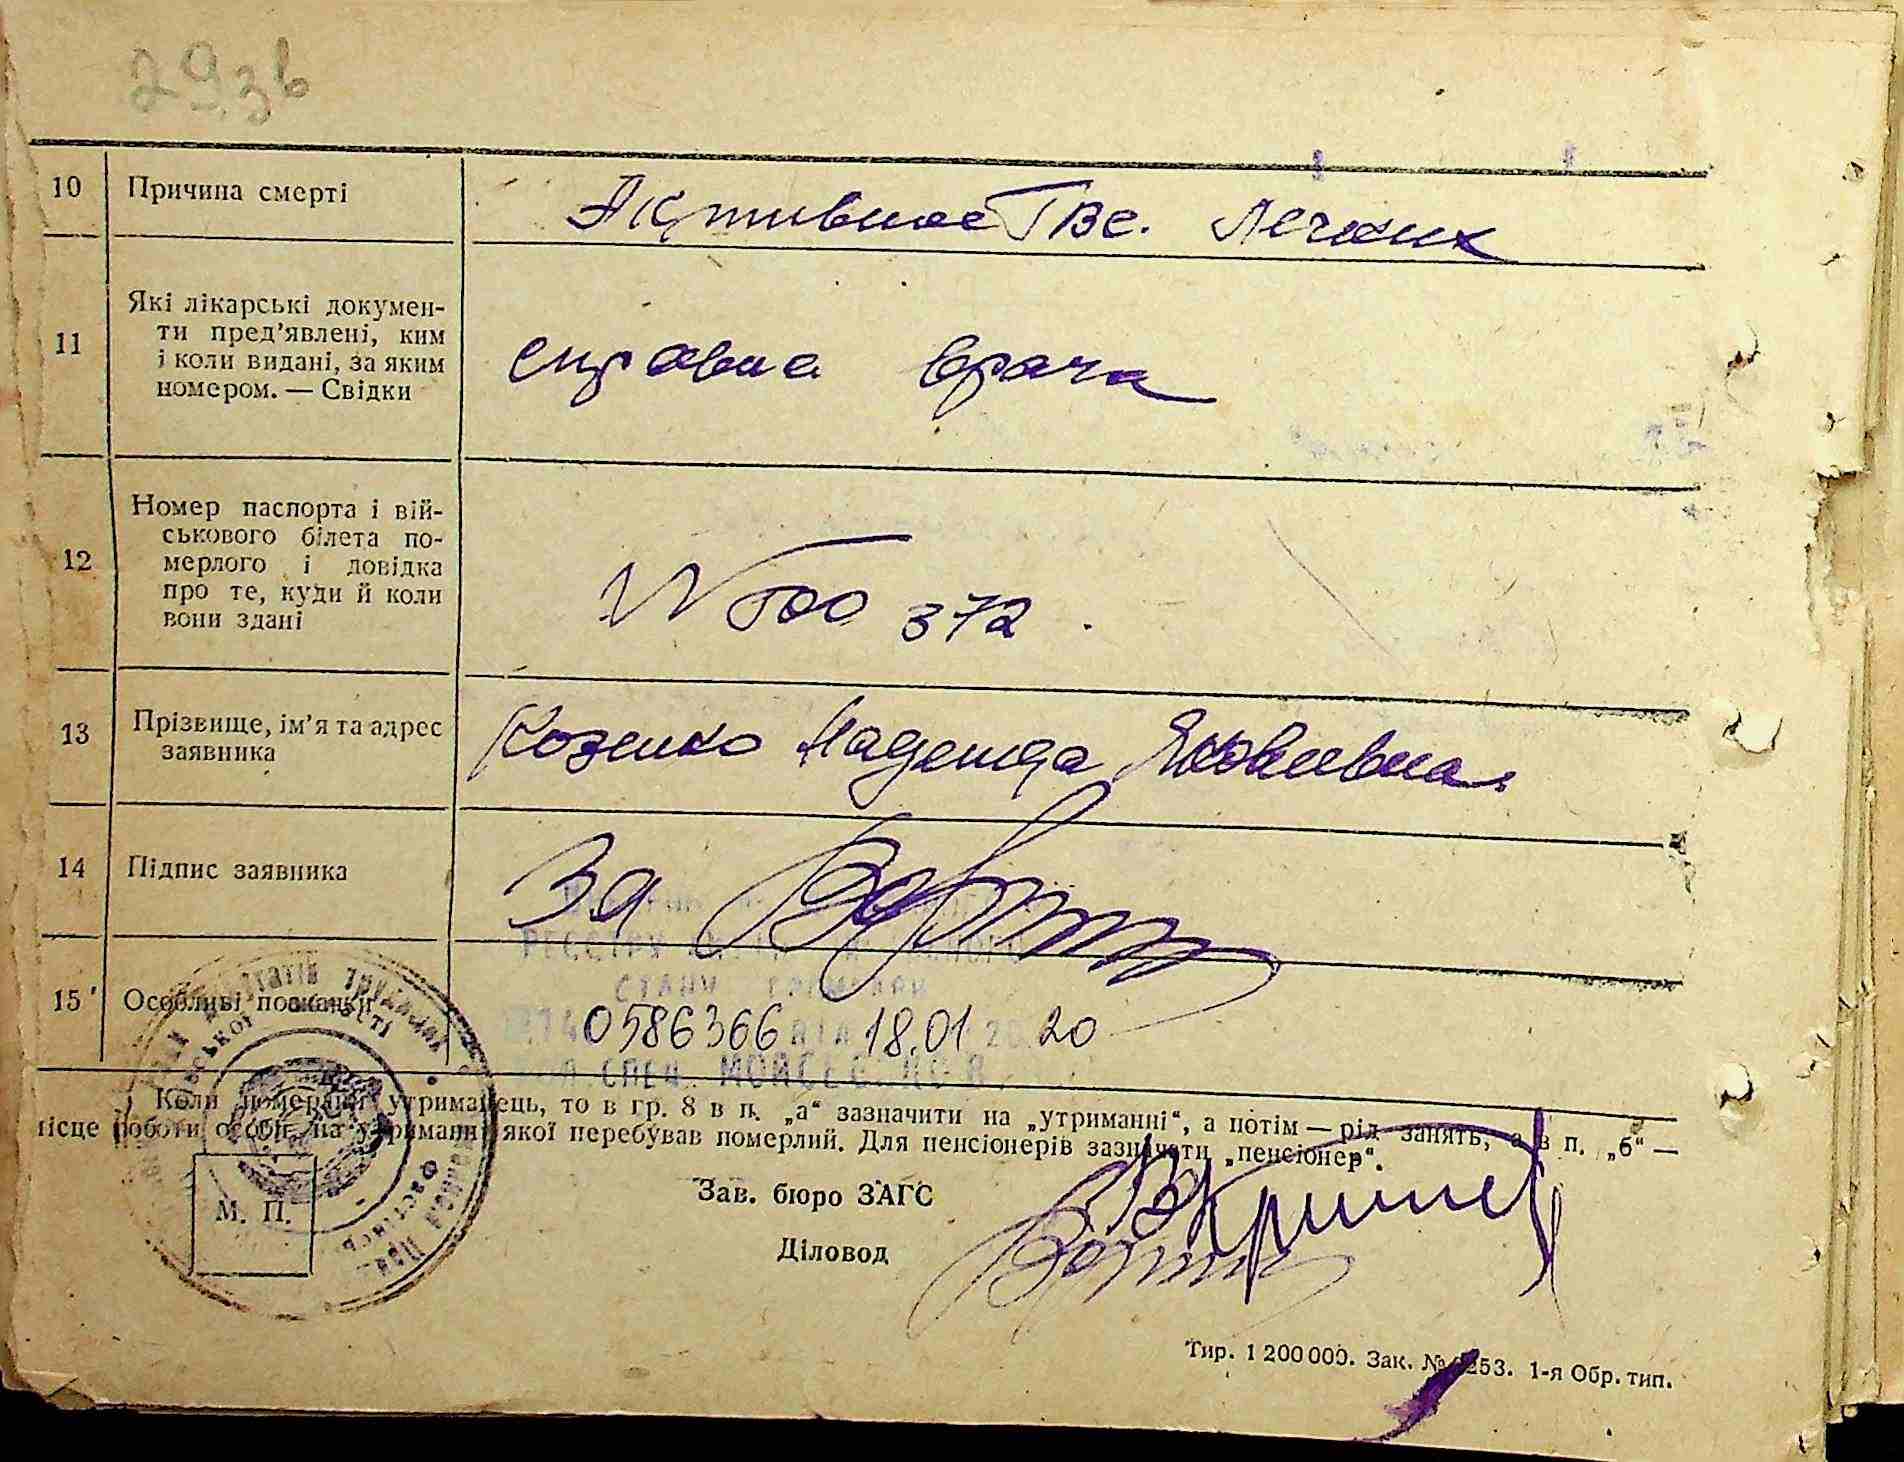 29зв
10 Причина смерті Активное ТВС. Легких
11 Які лікарські докумен-
ти пред'явлені, ким
і коли видані, за яким
номером. — Свідки
справка врача
12 Номер паспорта і вій-
ськового білета по-
мерлого і довідка
про те, куди й коли
вони здані
372
13 Прізвище, ім'я та адрес
заявника
Козенко Надежда Яковлевна
14 Підпис заявника За
РЕЄСТРУ
СТАНУ ГРОМАДЯН
15 Особливі познаки 0586366 18.01 20
СПЕЦ.
Коли померлий утриманець, то в гр. 8 в п. „а“ зазначити на „утриманні“, а потім — рід занять, а в п. „б“ —
місце роботи особи, на утриманні якої перебував померлий. Для пенсіонерів зазначати „пенсіонер“.
Зав. бюро ЗАГС
М. П.
Діловод
Тир. 1 200 000. Зак. № 253. 1-я Обр. тип.